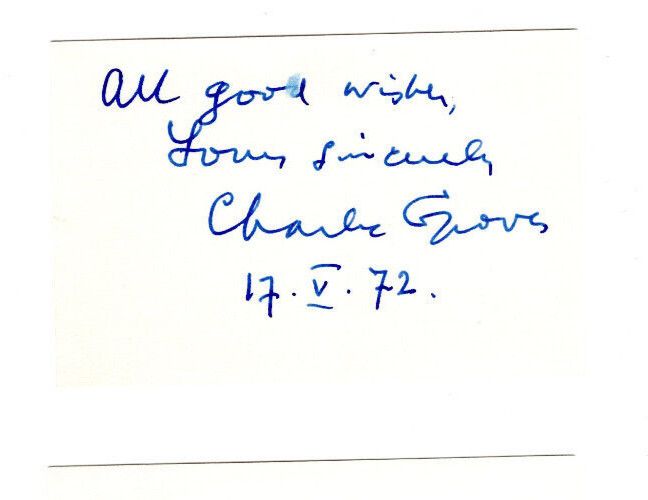 All good wishes,
Yours sincerely
Charles Groves
17. V. 72.